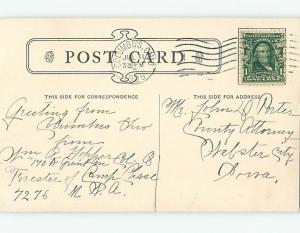 COLUMBUS, O.
POST CARD
1
THIS SIDE FOR CORRESPONDENCE
THIS SIDE FOR ADDRESS
Greeting from
Columbus Ohio
from
Wm
Forester of Camp Chase
7276 M. W. A.
Mr. John D. Porter
County Attorney
Webster City
Iowa.